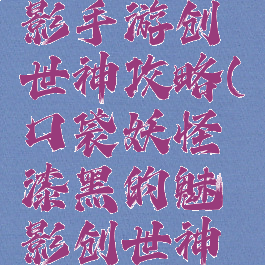 影手游创
世神攻略(
口袋妖怪
漆黑的魅
影创世神